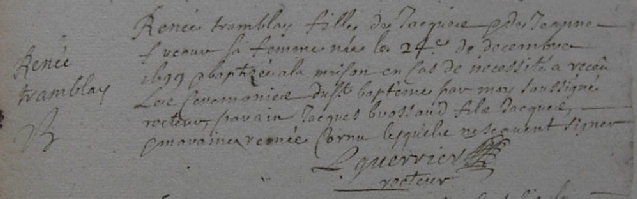 Renée
tramblay
Renée tramblay fille de Jacques & de Jeanne
sa femme née le 24.e de decembre
1699 & baptizée a la maison en cas de necessité a receu
les ceremonies dudt baptême par moy soussigné
recteur, parain Jacques brossaud fils Jacques,
& maraine renée Cornu lesquels ne sçavent signer
L guerrier
recteur